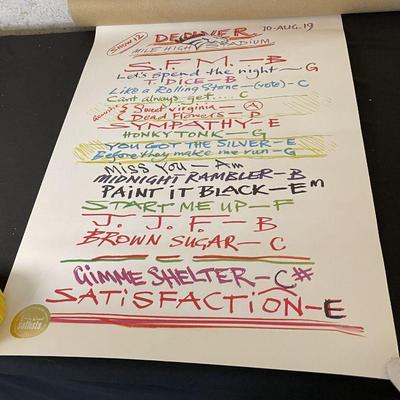 SHOW 12 DENVER 10-AUG.19
MILE HIGH STADIUM
S.F.M. - B
Let's spend the night - G
T. DICE - B
Like a Rolling Stone - (vote) - C
Cant always get.... C
Sweet virginia - A
Dead Flowers - D
SYMPATHY - E
HONKY TONK - G
YOU GOT THE SILVER - E
Before they make me run - G
MISS YOU - Am
MIDNIGHT RAMBLER - B
PAINT IT BLACK - Em
START ME UP - F
J. J. F. - B
BROWN SUGAR - C
GIMME SHELTER - C#
SATISFACTION - E
setlists